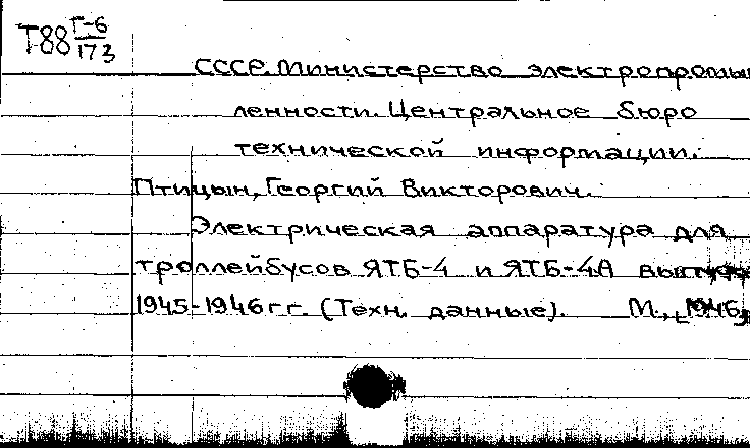 Т88 Г-6
173
СССР. Министерство электропромыш
ленности. Центральное бюро
технической информации.
Птицын, Георгий Викторович.
Электрическая аппаратура для
троллейбусов ЯТБ-4 и ЯТБ-4А
1945-1946 гг. (Техн. данные). М., [1946]